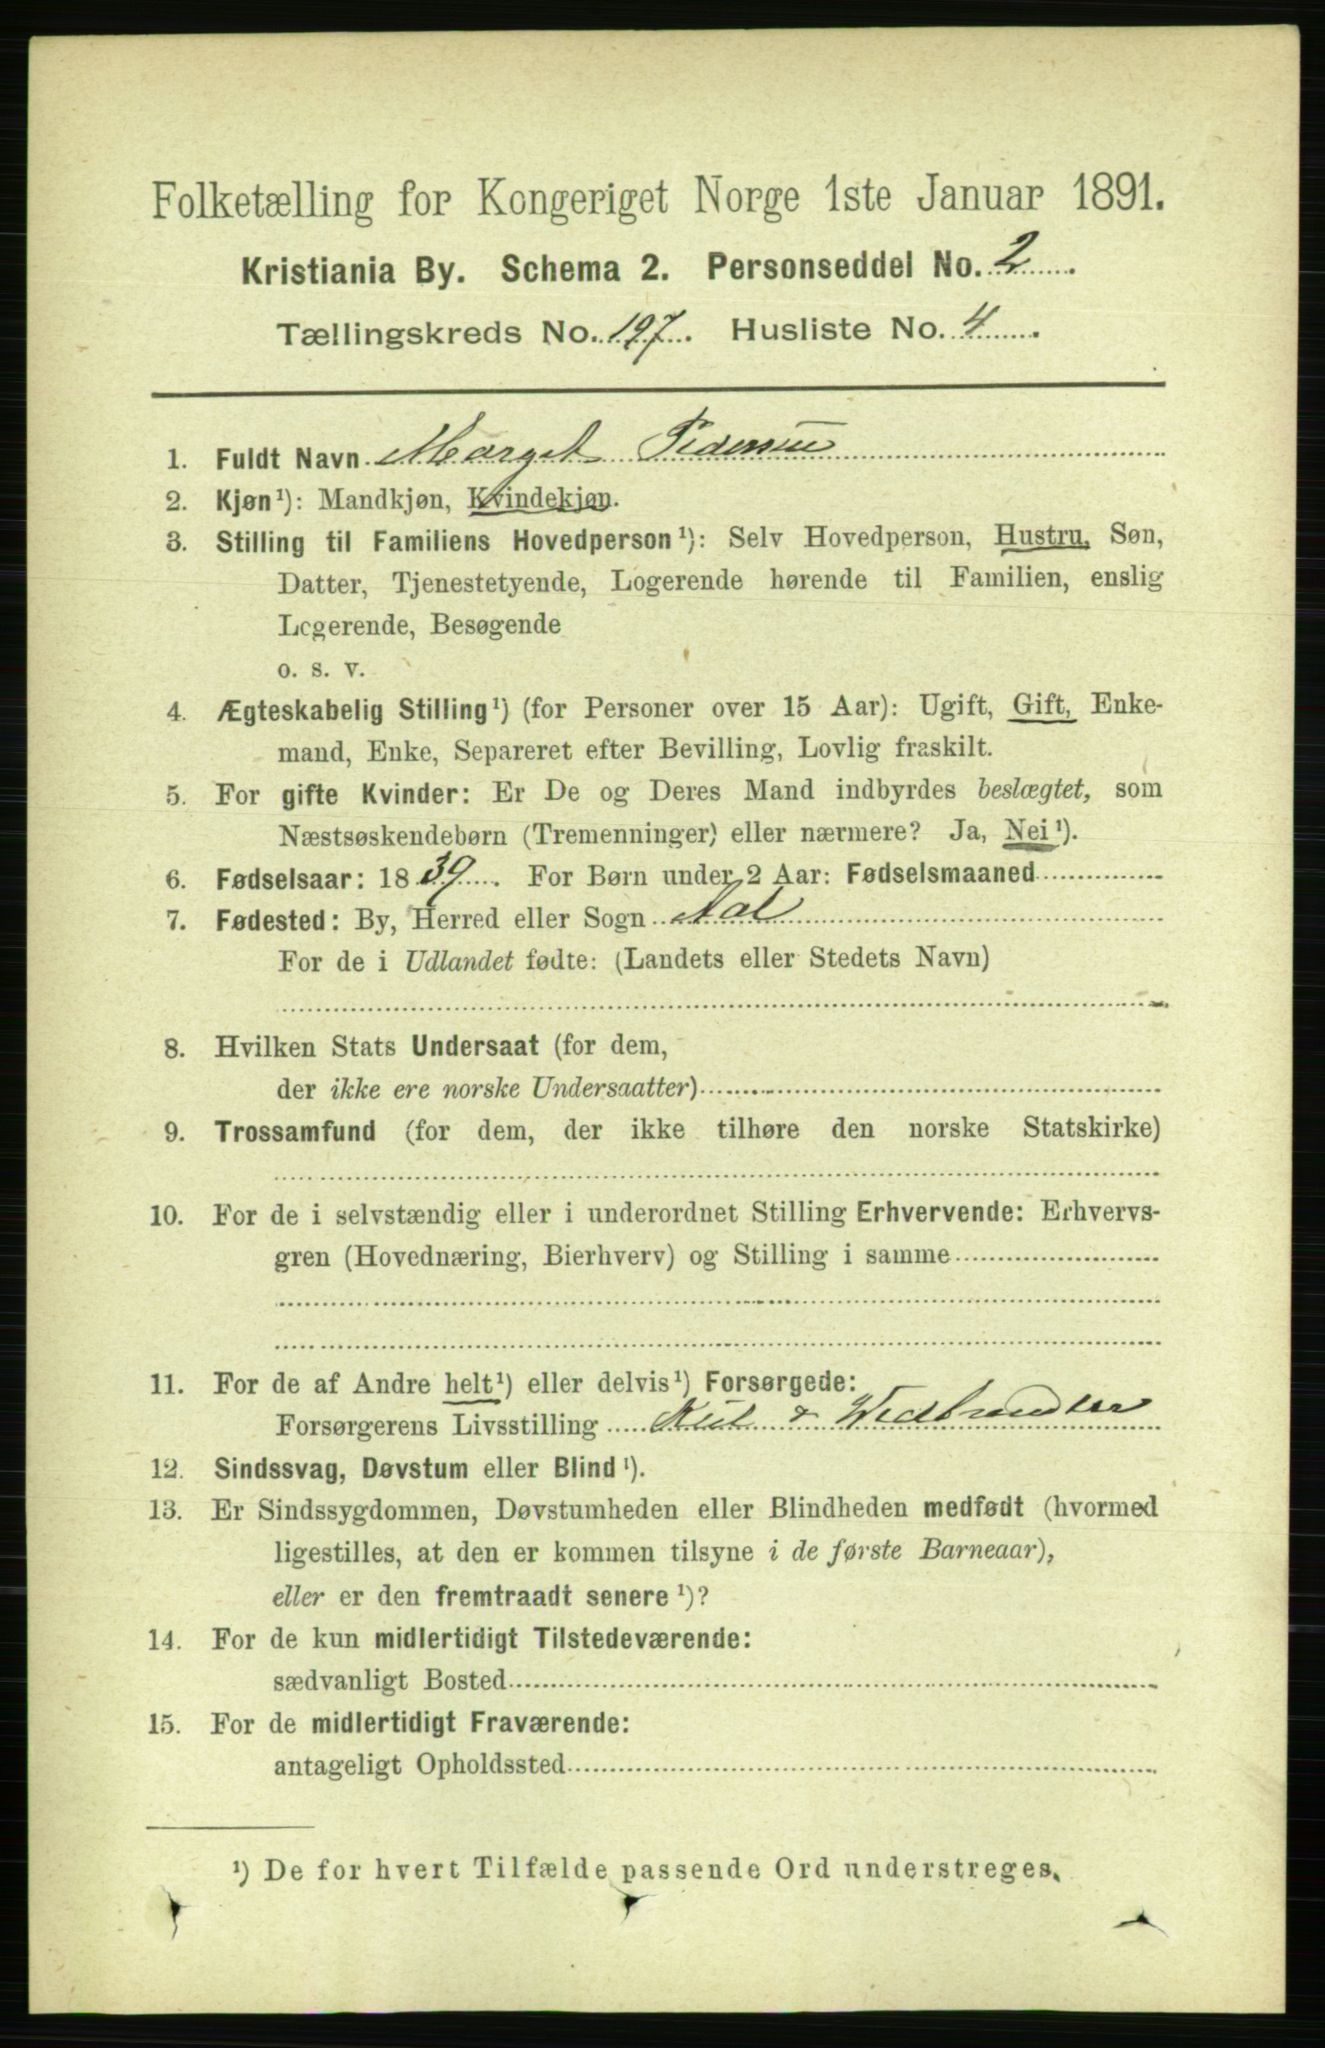 Folketælling for Kongeriget Norge 1ste Januar 1891.
Kristiania By. Schema 2. Personseddel No. 2
Tællingskreds No. 197. Husliste No. 4
1. Fuldt Navn Marget Pedersen
2. Kjøn¹): Mandkjøn, Kvindekjøn.
3. Stilling til Familiens Hovedperson¹): Selv Hovedperson, Hustru, Søn,
Datter, Tjenestetyende, Logerende hørende til Familien, enslig
Logerende, Besøgende
o. s. v.
4. Ægteskabelig Stilling¹) (for Personer over 15 Aar): Ugift, Gift, Enke-
mand, Enke, Separeret efter Bevilling, Lovlig fraskilt.
5. For gifte Kvinder: Er De og Deres Mand indbyrdes beslægtet, som
Næstsøskendebørn (Tremenninger) eller nærmere? Ja, Nei¹).
6. Fødselsaar: 1839. For Børn under 2 Aar: Fødselsmaaned
7. Fødested: By, Herred eller Sogn Aal
For de i Udlandet fødte: (Landets eller Stedets Navn)
8. Hvilken Stats Undersaat (for dem,
der ikke ere norske Undersaatter)
9. Trossamfund (for dem, der ikke tilhøre den norske Statskirke)
10. For de i selvstændig eller i underordnet Stilling Erhvervende: Erhvervs-
gren (Hovednæring, Bierhverv) og Stilling i samme
11. For de af Andre helt¹) eller delvis¹) Forsørgede:
Forsørgerens Livsstilling Kul & Wedhandler
12. Sindssvag, Døvstum eller Blind¹).
13. Er Sindssygdommen, Døvstumheden eller Blindheden medfødt (hvormed
ligestilles, at den er kommen tilsyne i de første Barneaar),
eller er den fremtraadt senere¹)?
14. For de kun midlertidigt Tilstedeværende:
sædvanligt Bosted
15. For de midlertidigt Fraværende:
antageligt Opholdssted
¹) De for hvert Tilfælde passende Ord understreges.